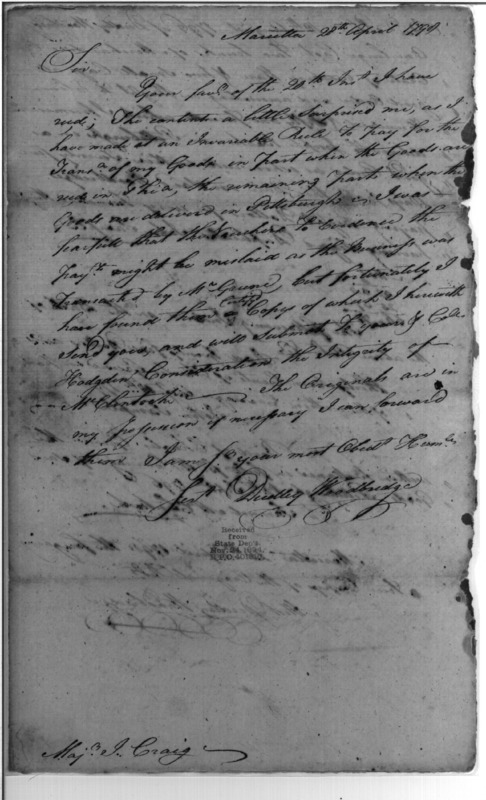 Marietta 28th April 1798
Sir
Your favr. of the 20th Inst. I have
recd; The contents a little Surprised me, as I
have made it an Invariable Rule to Pay for the
Trans of my Goods in Part when the Goods are
recd in the remaining Part when the
Goods are delivered in Pittsburgh I was
that the Vouchers to Evidence the
Paymt. might be mislaid as the Business was
Transacted by Mr Greene, but fortunately I
have found them Copys of which I herewith
Send you, and will Submit to your & Colo
Hodgdon Consideration the Integrity of
Mr The Originals are in
my Possession if necessary I can forward
them I am Sr your most Obedt Humble
Servt Dudley Woodbridge
Received
from
State Dept.
Majr. I. Craig